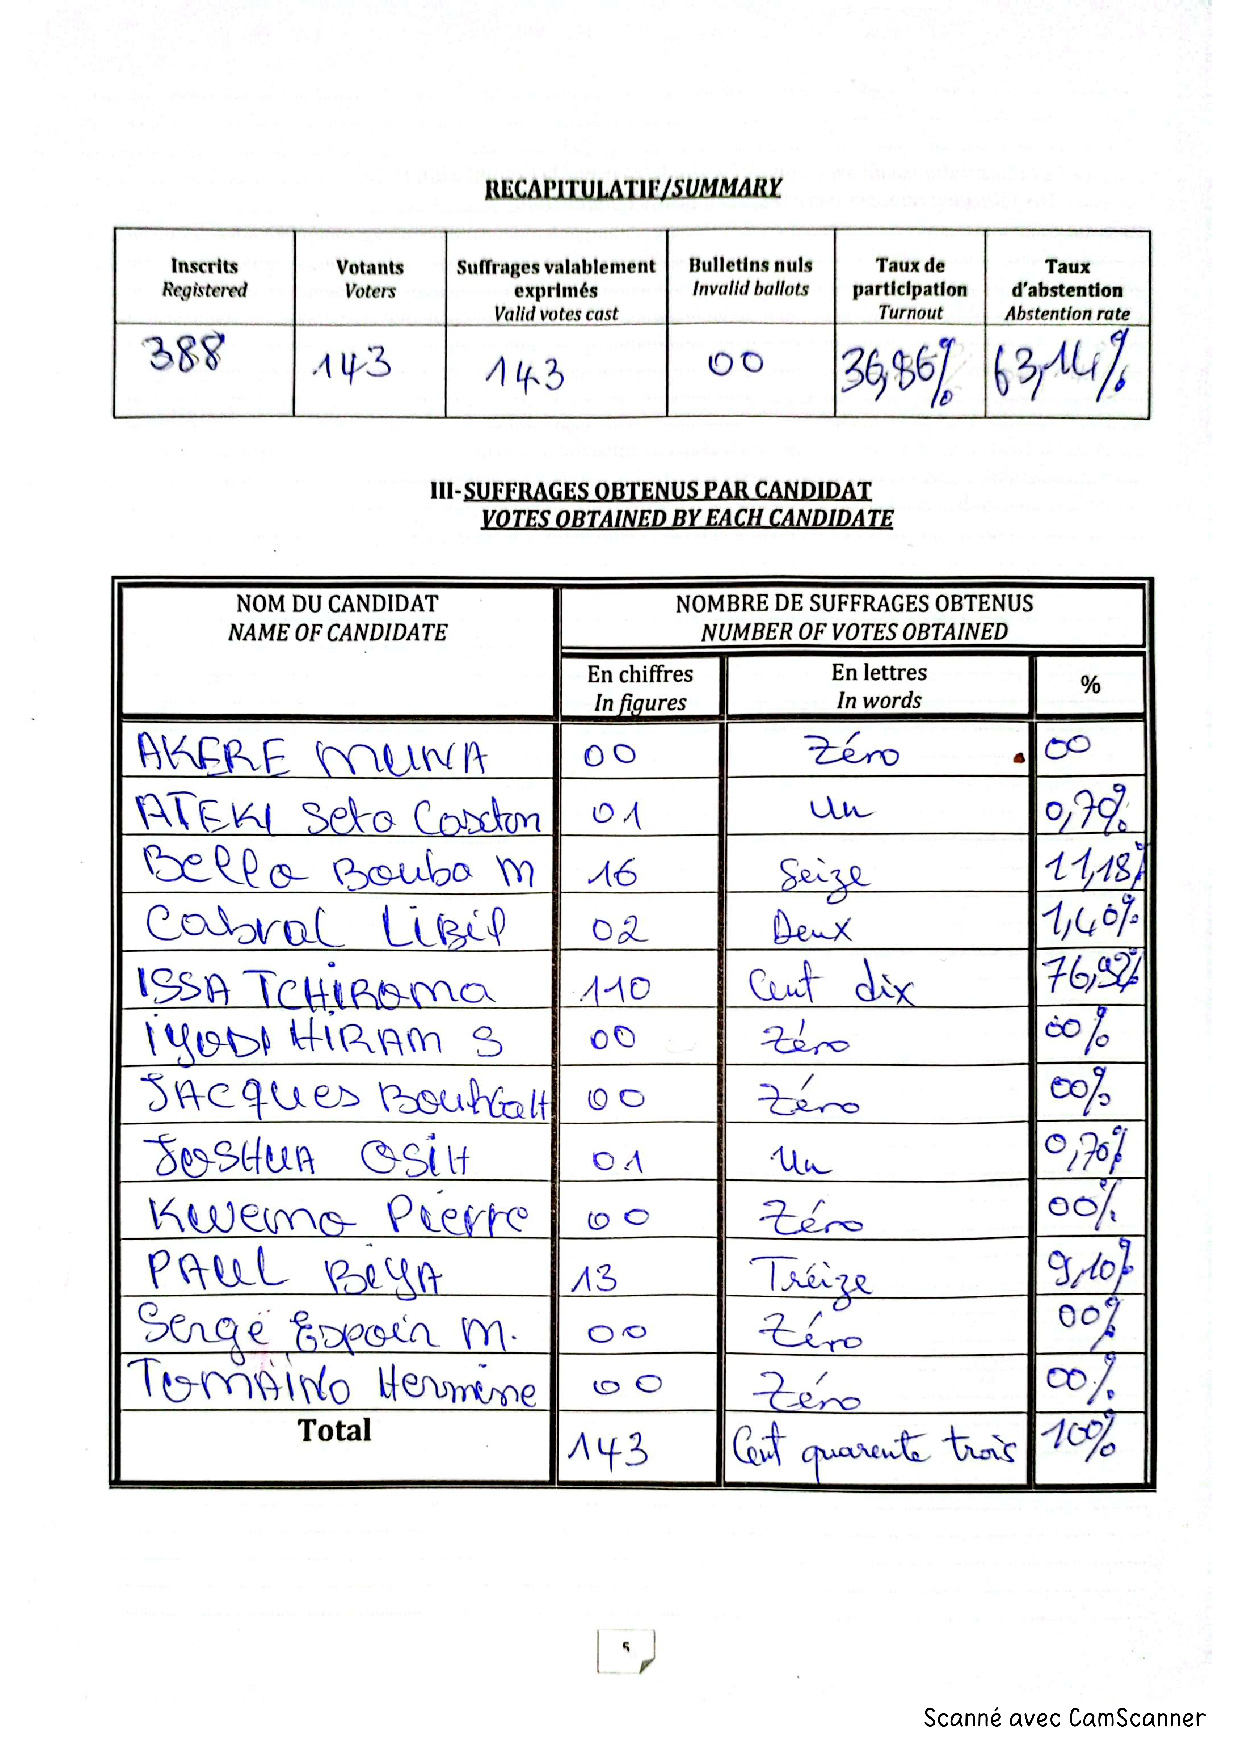 RECAPITULATIF/SUMMARY
Inscrits Registered | Votants Voters | Suffrages valablement exprimés Valid votes cast | Bulletins nuls Invalid ballots | Taux de participation Turnout | Taux d'abstention Abstention rate
388 | 143 | 143 | 00 | 36,86% | 63,14%
III-SUFFRAGES OBTENUS PAR CANDIDAT
VOTES OBTAINED BY EACH CANDIDATE
NOM DU CANDIDAT NAME OF CANDIDATE | NOMBRE DE SUFFRAGES OBTENUS NUMBER OF VOTES OBTAINED
En chiffres In figures | En lettres In words | %
AKERE MUNA | 00 | Zéro | 00
ATEKI Seta Caxton | 01 | Un | 0,70%
Bello Bouba M | 16 | Seize | 11,18%
Cabral LiBii | 02 | Deux | 1,40%
ISSA TCHIROMA | 110 | Cent dix | 76,92%
IYODI HIRAM S | 00 | Zéro | 00%
JACques BouhGaH | 00 | Zéro | 00%
JOSHUA OSIH | 01 | Un | 0,70%
Kwemo Pierre | 00 | Zéro | 00%
PAUL BiYA | 13 | Treize | 9,10%
Serge Espoir M. | 00 | Zéro | 00%
TOMAINO Hermine | 00 | Zéro | 00%
Total | 143 | Cent quarente trois | 100%
5
Scanné avec CamScanner